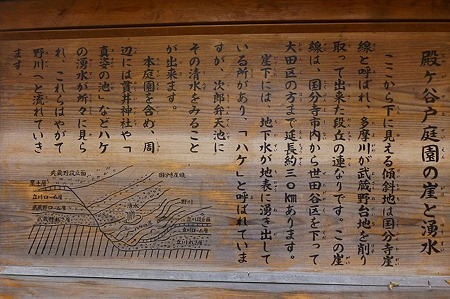 殿ヶ谷戸庭園の崖と湧水
ここから下に見える傾斜地は国分寺崖
線と呼ばれ、多摩川が武蔵野台地を削り
取って出来た段丘の連なりです。この崖
線は、国分寺市内から世田谷区を下って
大田区の方まで延長約三〇㎞あります。
崖下には、地下水が地表に湧き出して
いる所があり、「ハケ」と呼ばれていま
すが、次郎弁天池に
その清水をみること
が出来ます。
本庭園を含め、周
辺には貫井神社や「
真姿の池」などハケ
の湧水が所々に見ら
れ、これらはやがて
野川へと流れていき
ます。
武蔵野段丘面
国分寺崖線
表土層
立川ローム層
武蔵野ローム層
武蔵野れき層
湧水
野川
立川段丘面
立川ローム層
立川れき層